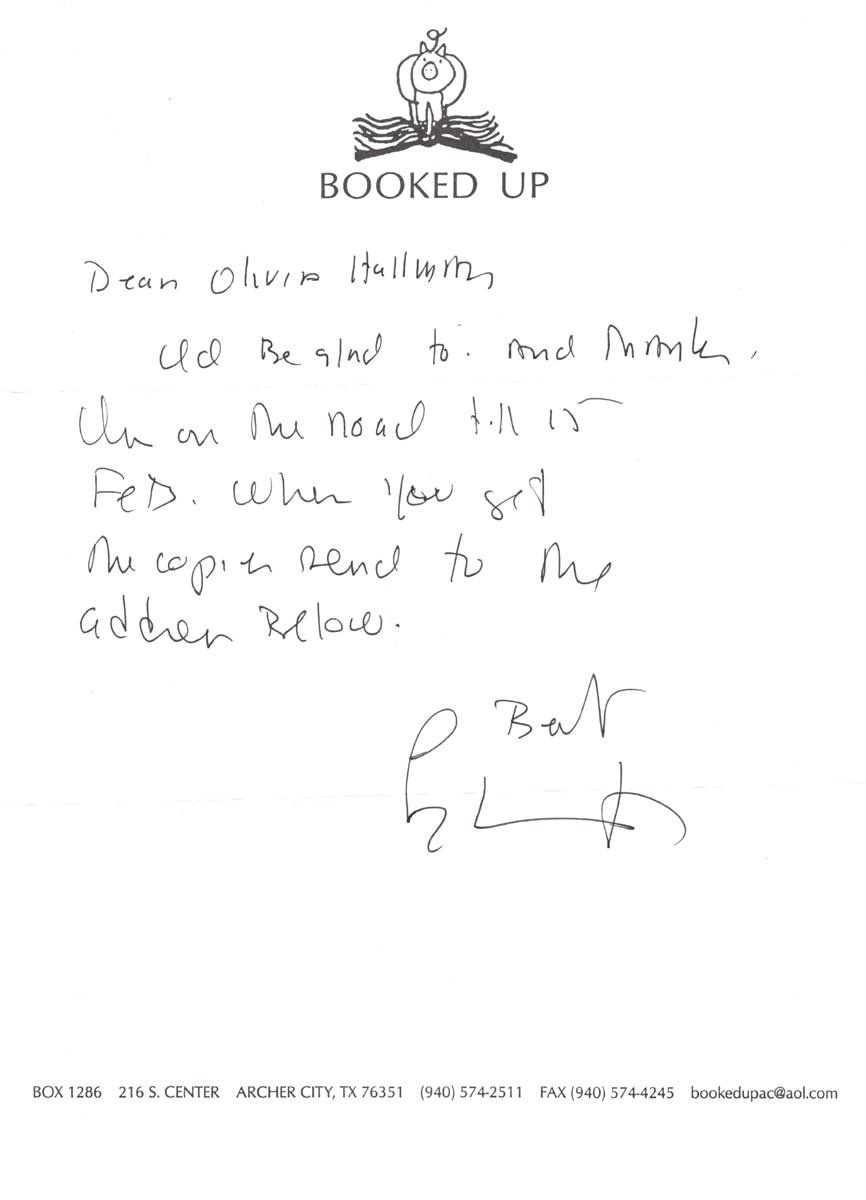 BOOKED UP
Dear Olivia
I'd Be glad to. And Thanks.
I'm on the road till 15
FeB. When You get
the copies send to the
address Below.
Best
BOX 1286 216 S. CENTER ARCHER CITY, TX 76351 (940) 574-2511 FAX (940) 574-4245 bookedupac@aol.com